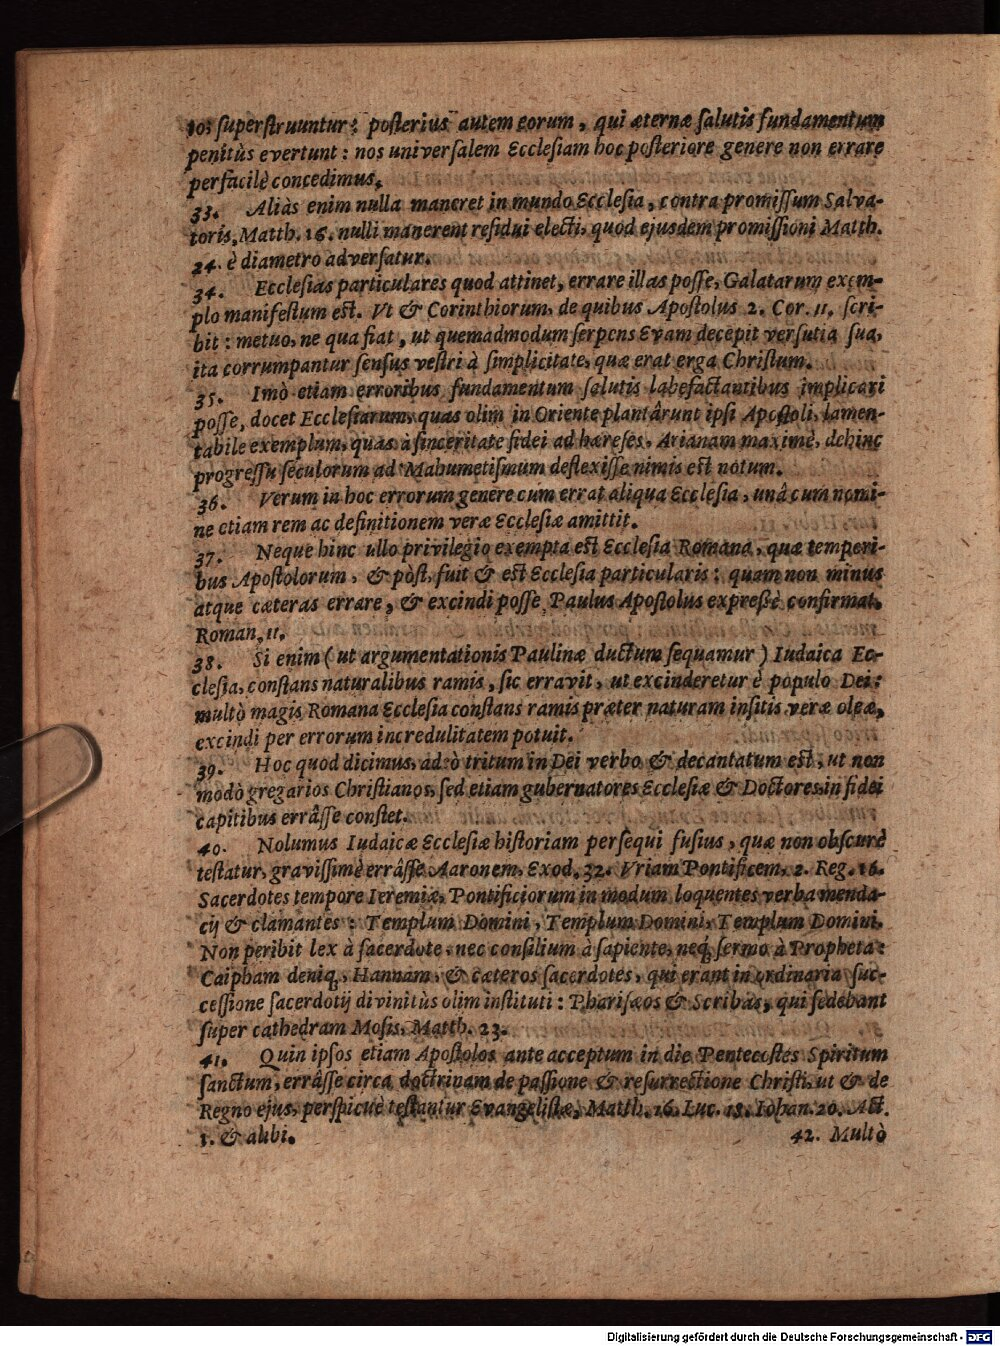 10: ſuperſtruuntur: poſterius autem eorum, qui æternæ ſalutis fundamentum
penitùs evertunt: nos univerſalem Eccleſiam hoc poſteriore genere non errare
perfacilè concedimus.
33. Aliàs enim nulla maneret in mundo Eccleſia, contra promiſſum Salva-
toris, Matth. 16. nulli manerent reſidui electi, quod ejuſdem promiſſioni Matth.
24. è diametro adverſatur.
34. Eccleſias particulares quod attinet, errare illas poſſe, Galatarum exem-
plo manifeſtum eſt. Vt & Corinthiorum, de quibus Apoſtolus 2. Cor. 11. ſcri-
bit: metuo, ne qua fiat, ut quemadmodum ſerpens Evam decepit verſutia ſua,
ita corrumpantur ſenſus veſtri à ſimplicitate, quæ erat erga Chriſtum.
35. Imò etiam erroribus fundamentum ſalutis labefactantibus implicari
poſſe, docet Eccleſiarum, quas olim in Oriente plantârunt ipſi Apoſtoli, lamen-
tabile exemplum, quas à ſinceritate fidei ad hæreſes, Arianam maximè, dehinc
progreſſu ſeculorum ad Mahumetiſmum deflexiſſe nimis eſt notum.
36. Verum in hoc errorum genere cum errat aliqua Eccleſia, unâ cum nomi-
ne etiam rem ac definitionem veræ Eccleſiæ amittit.
37. Neque hinc ullo privilegio exempta eſt Eccleſia Romana, quæ tempori-
bus Apoſtolorum, & pòſt, fuit & eſt Eccleſia particularis: quam non minus
atque cæteras errare, & excindi poſſe, Paulus Apoſtolus expreßè confirmat,
Roman. 11.
38. Si enim (ut argumentationis Paulinæ ductum ſequamur) Iudaica Ec-
cleſia, conſtans naturalibus ramis, ſic erravit, ut excinderetur è populo Dei:
multò magis Romana Eccleſia conſtans ramis præter naturam inſitis veræ oleæ,
excindi per errorum incredulitatem potuit.
39. Hoc quod dicimus, adeò tritum in Dei verbo & decantatum eſt, ut non
modò gregarios Chriſtianos, ſed etiam gubernatores Eccleſiæ & Doctores in fidei
capitibus errâſſe conſtet.
40. Nolumus Iudaicæ Eccleſiæ hiſtoriam perſequi fuſius, quæ non obſcurè
teſtatur, graviſſimè errâſſe Aaronem, Exod. 32. Vriam Pontificem, 2. Reg. 16.
Sacerdotes tempore Ieremiæ, Pontificiorum in modum loquentes verba menda-
cij & clamantes: Templum Domini, Templum Domini, Templum Domini.
Non peribit lex à ſacerdote, nec conſilium à ſapiente, neq; ſermo à Propheta:
Caipham deniq;, Hannam, & cæteros ſacerdotes, qui erant in ordinaria ſuc-
ceſſione ſacerdotij divinitùs olim inſtituti: Phariſæos & Scribas, qui ſedebant
ſuper cathedram Moſis, Matth. 23.
41. Quin ipſos etiam Apoſtolos ante acceptum in die Pentecoſtes Spiritum
ſanctum, errâſſe circa doctrinam de paſſione & reſurrectione Chriſti, ut & de
Regno ejus, perſpicuè teſtantur Evangeliſtæ, Matth. 16. Luc. 18. Iohan. 20. Act.
1. & alibi.
42. Multò
Digitalisierung gefördert durch die Deutsche Forschungsgemeinschaft - DFG